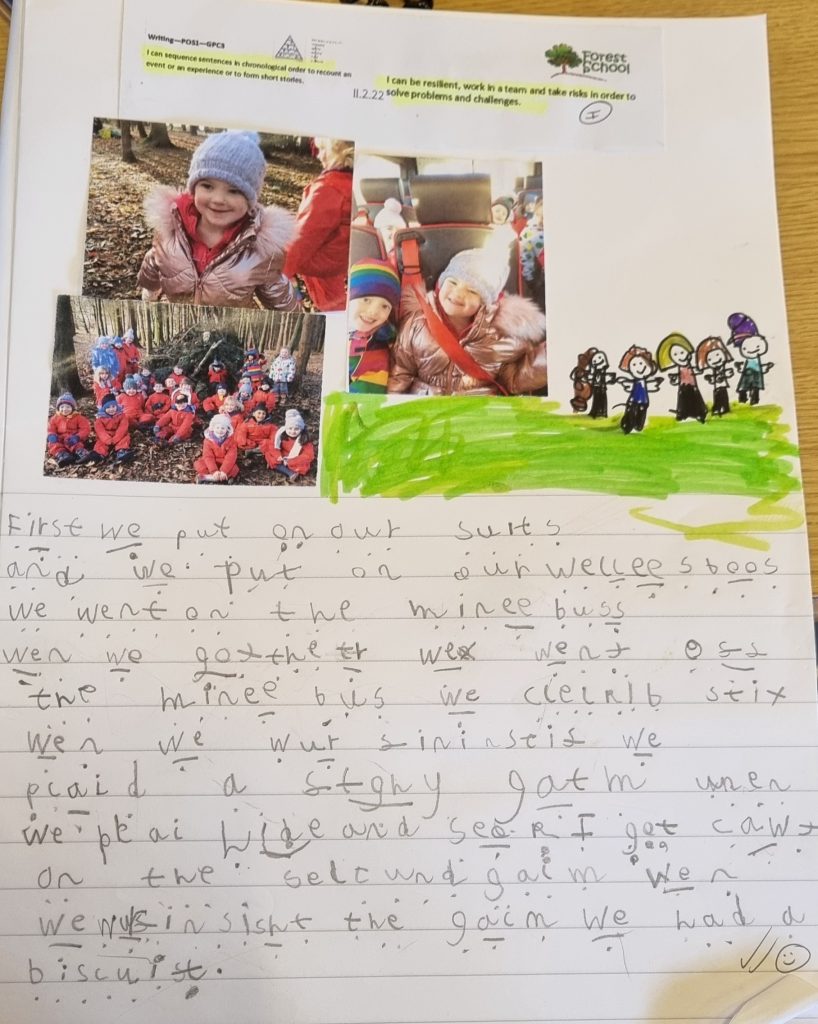 Writing—POS1—GPC3
I can sequence sentences in chronological order to recount an
event or an experience or to form short stories.
Forest
School
I can be resilient, work in a team and take risks in order to
11.2.22 solve problems and challenges.
I
First we put on our suits
and we put on our wellee sboos
we went on the minee buss
wen we gotthe tr wex went off
the minee bus we cleiklb stix
wen we wur finin stif we
plaid a stghy gaim wen
we plai hide and seek I got cawt
on the selcund gaim wen
we wus in sisht the gaim we had a
biscuist.